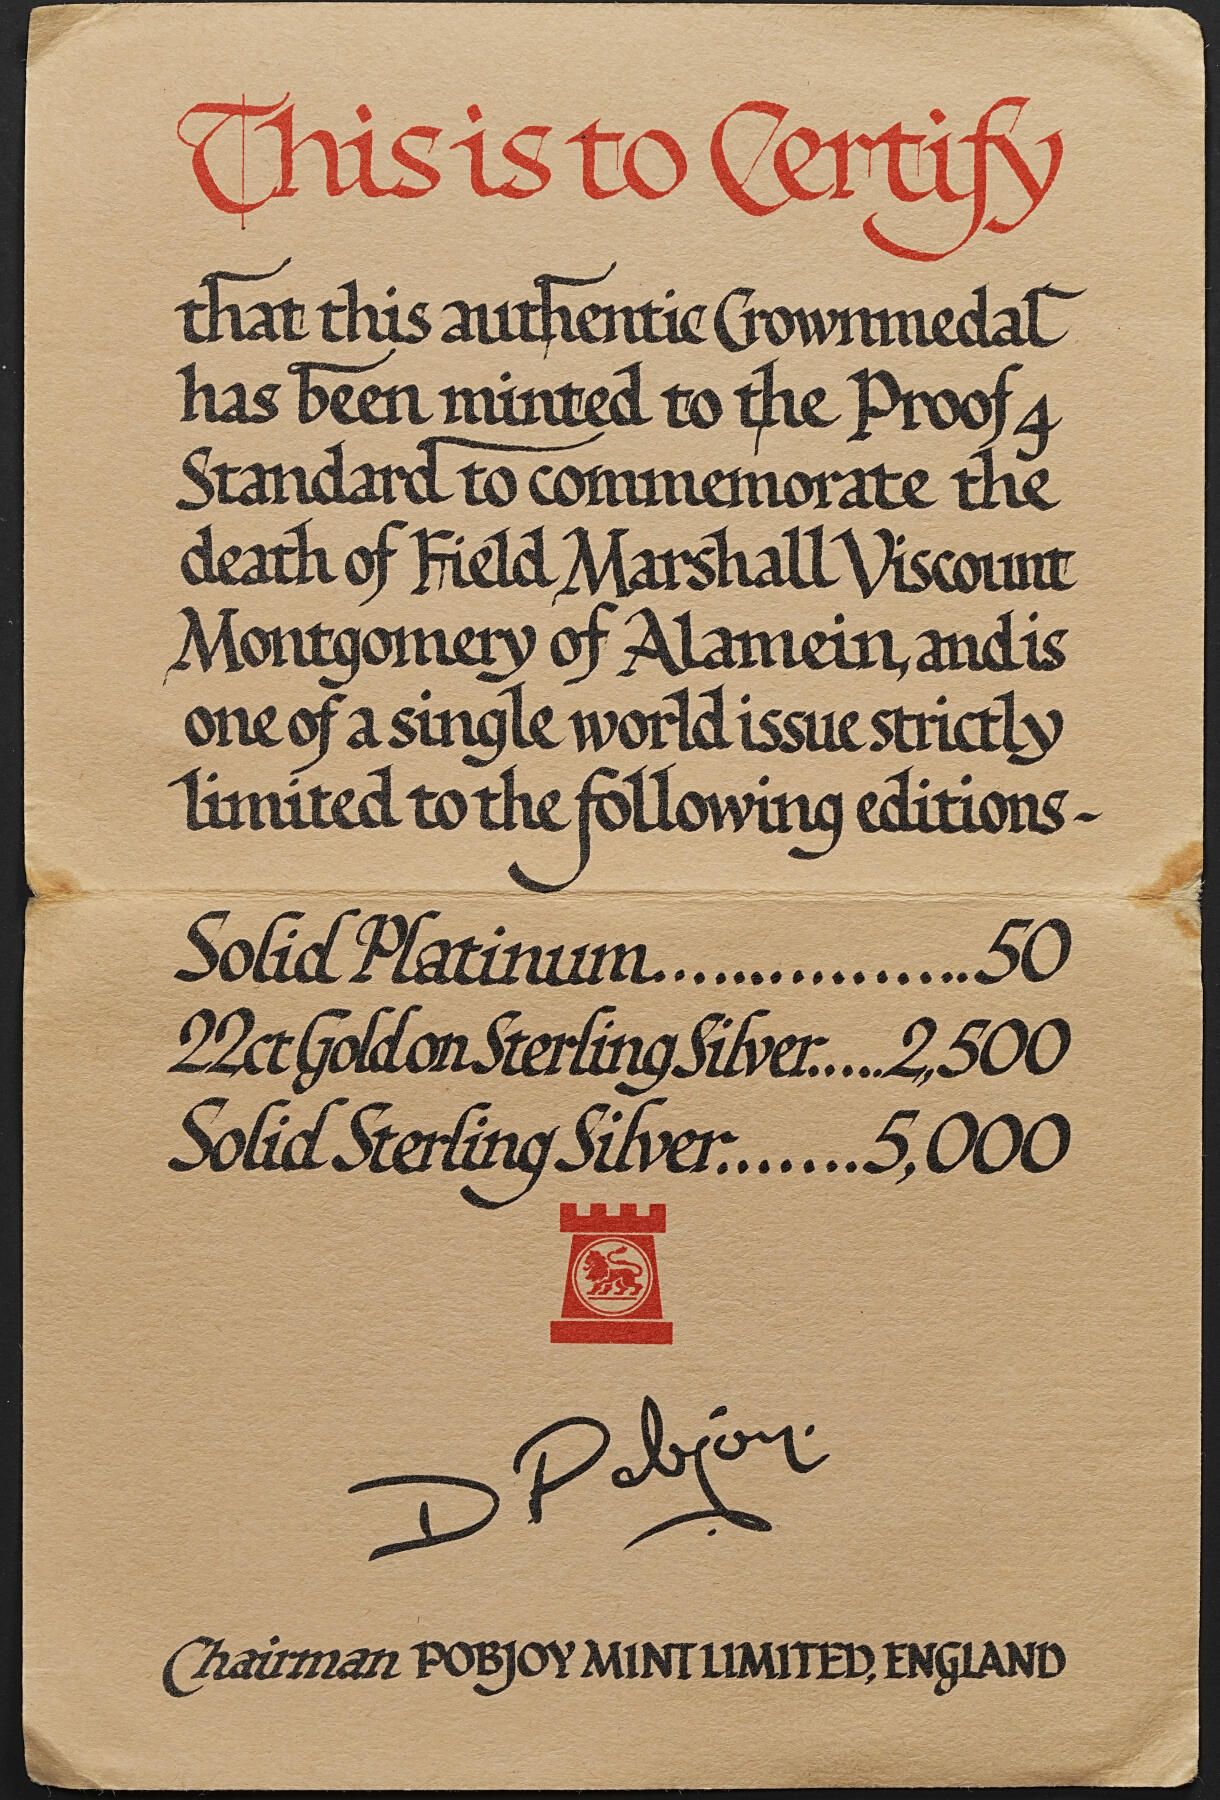 This is to Certify
that this authentic Crownmedal
has been minted to the Proof 4
Standard to commemorate the
death of Field Marshall Viscount
Montgomery of Alamein, and is
one of a single world issue strictly
limited to the following editions-
Solid Platinum.................50
22ct Gold on Sterling Silver.....2,500
Solid Sterling Silver.......5,000
D Pobjoy.
Chairman POBJOY MINT LIMITED, ENGLAND